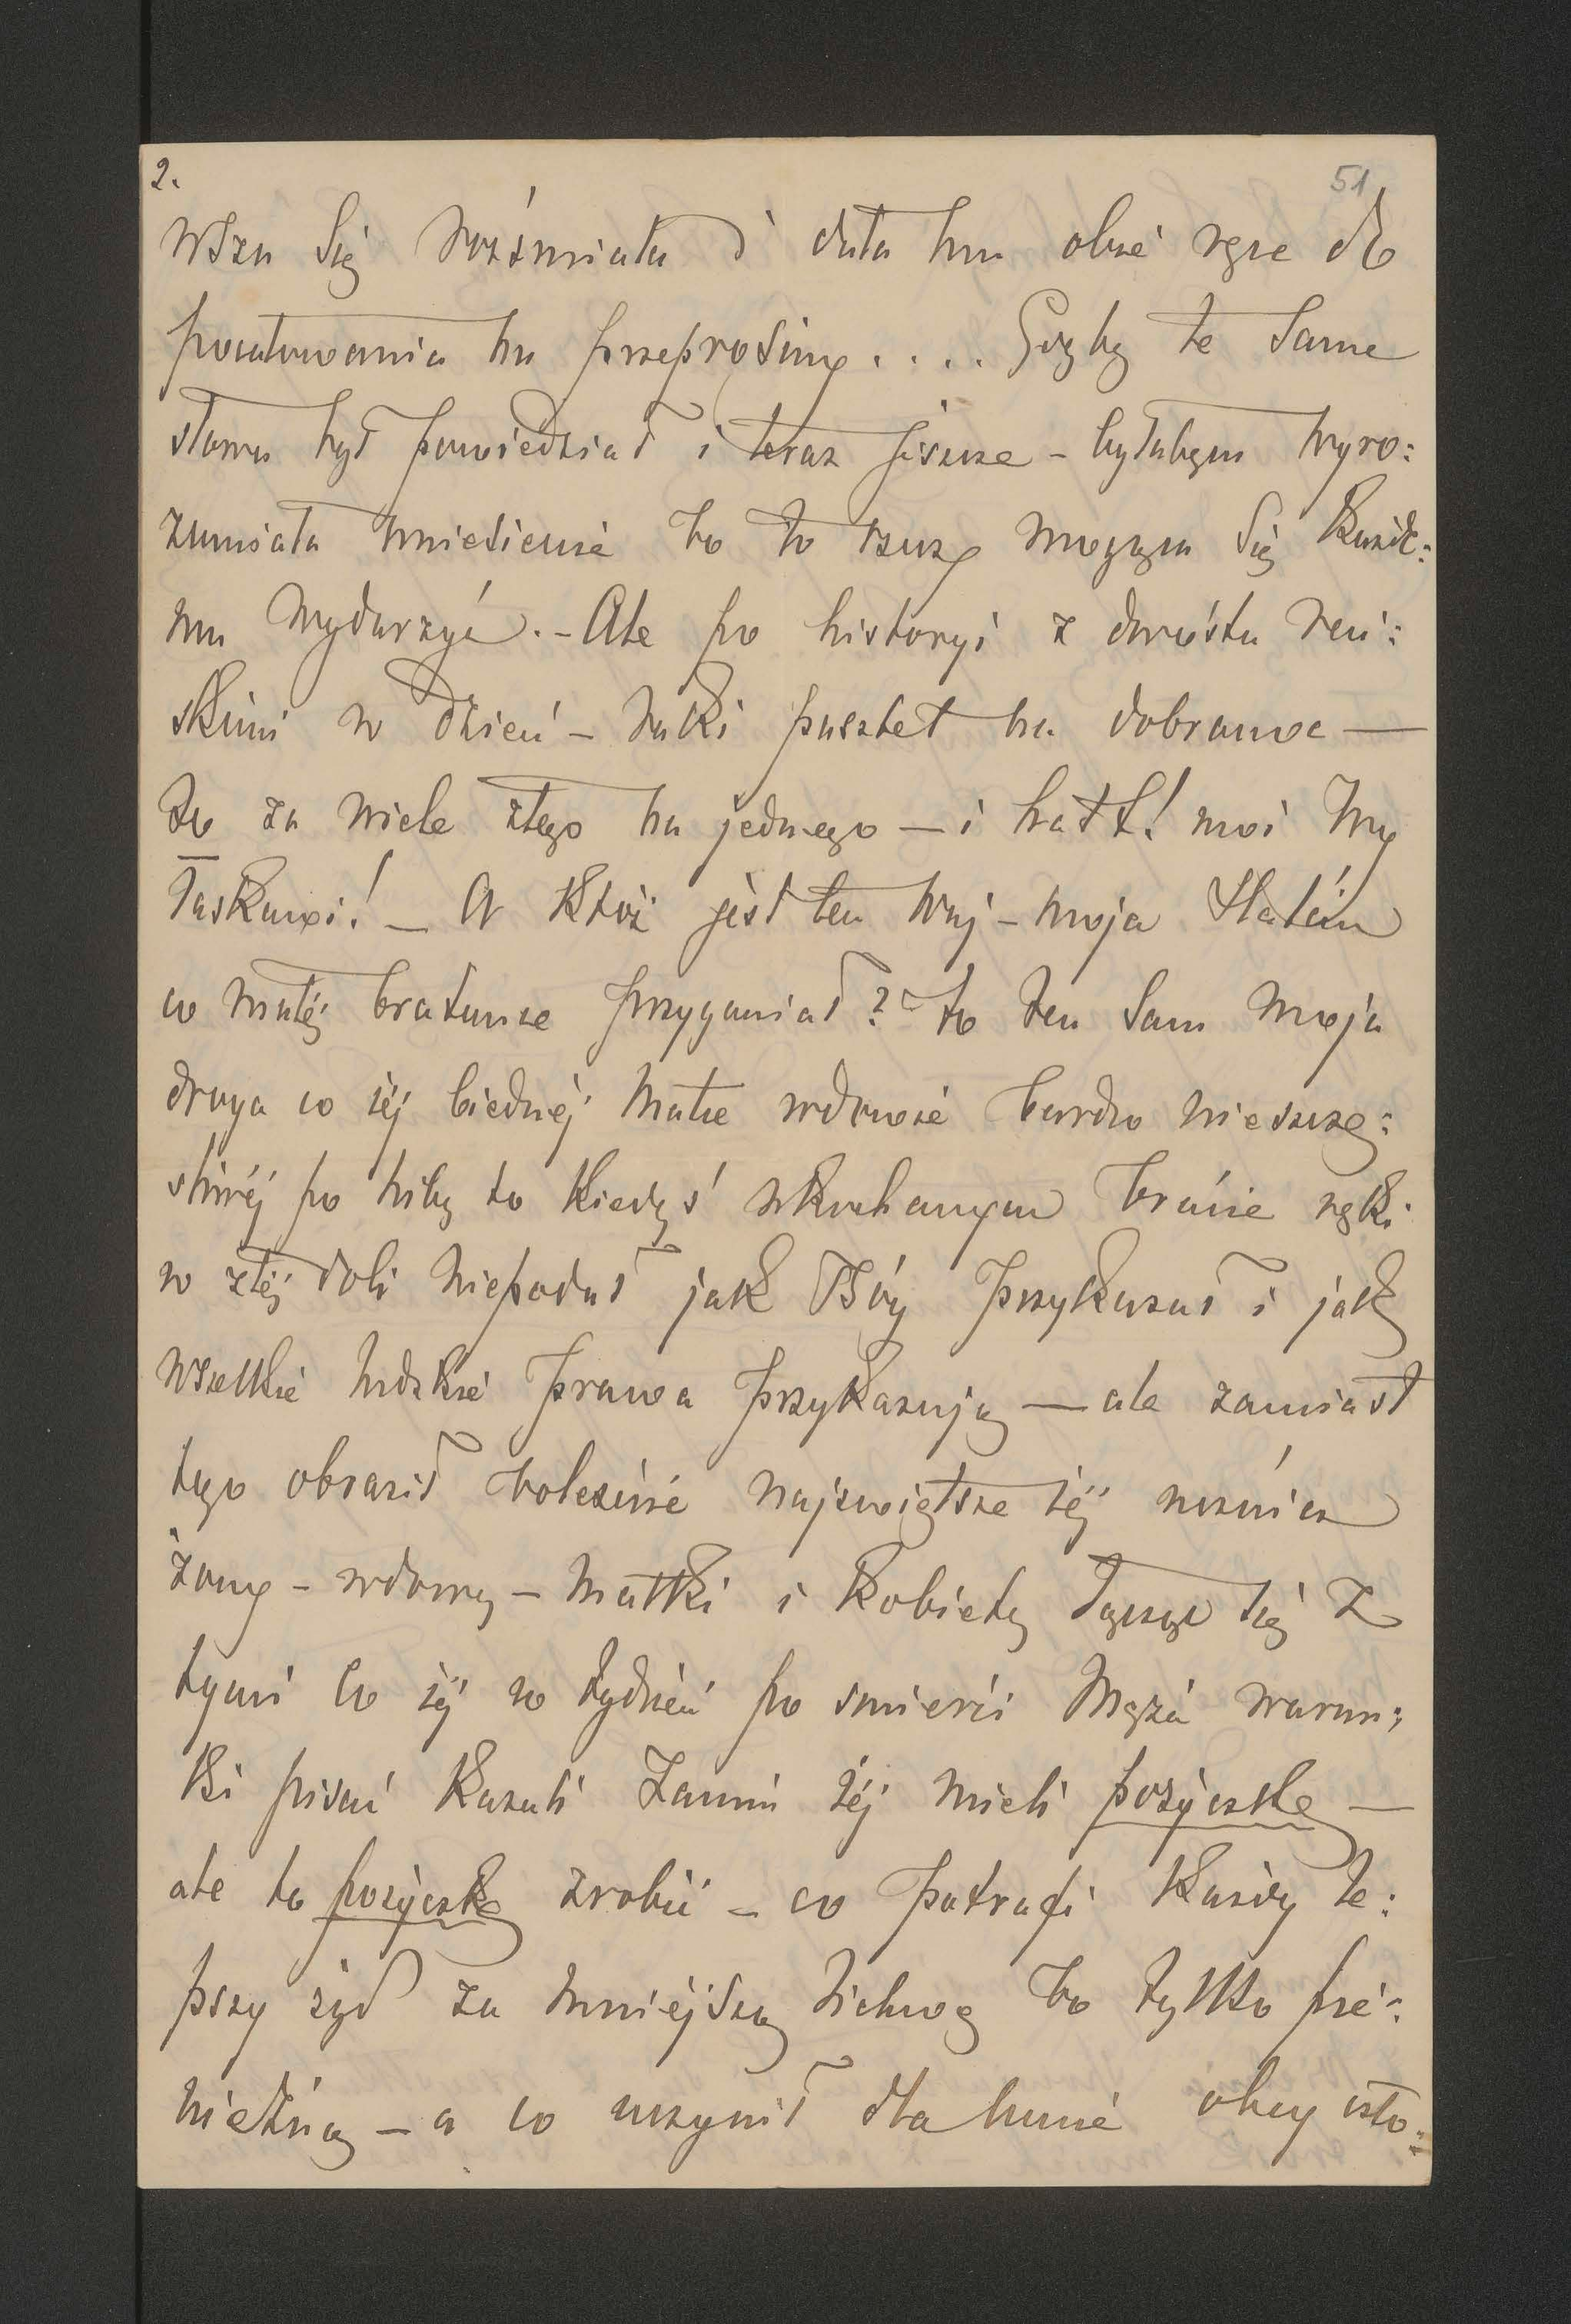 2.
51
wszu się rozśmiała i dała mu obie ręce do
pocałowania na przeprosiny.... Gdyby te same
słowa był powiedział i teraz jeszcze – byłabym wyro:
zumiała uniesienie bo to rzecz mogąca się każde:
mu wydarzyć. – Ale po historyi z dwóstu reń:
skimi w dzień – taki pasztet na dobranoc —
to za wiele złego na jednego – i halt! moi wy
łaskawi! – A któż jest ten wuj – moja
co małéj bratance przyganiał? to ten sam moja
droga co jéj biednéj matce wdowie bardzo nieszczę:
śliwéj po niby to kiedyś ukochanym bracie ręki
w złéj doli niepodał jak Bóg przykazał i jak
wszelkie ludzkie prawa przykazują — ale zamiast
tego obraził boleśnie najświętsze jéj uczucia
żony – wdowy – matki i kobiety łącząc się z
tymi co jéj w tydzień po śmierci męża warun:
ki pisać kazali zanim jéj mieli pożyczkę —
ale to pożyczkę zrobić – co potrafi każdy le:
pszy żyd za mniejszą lichwą bo tylko pie:
niężną – a co uczynił dla mnie obcy czło: